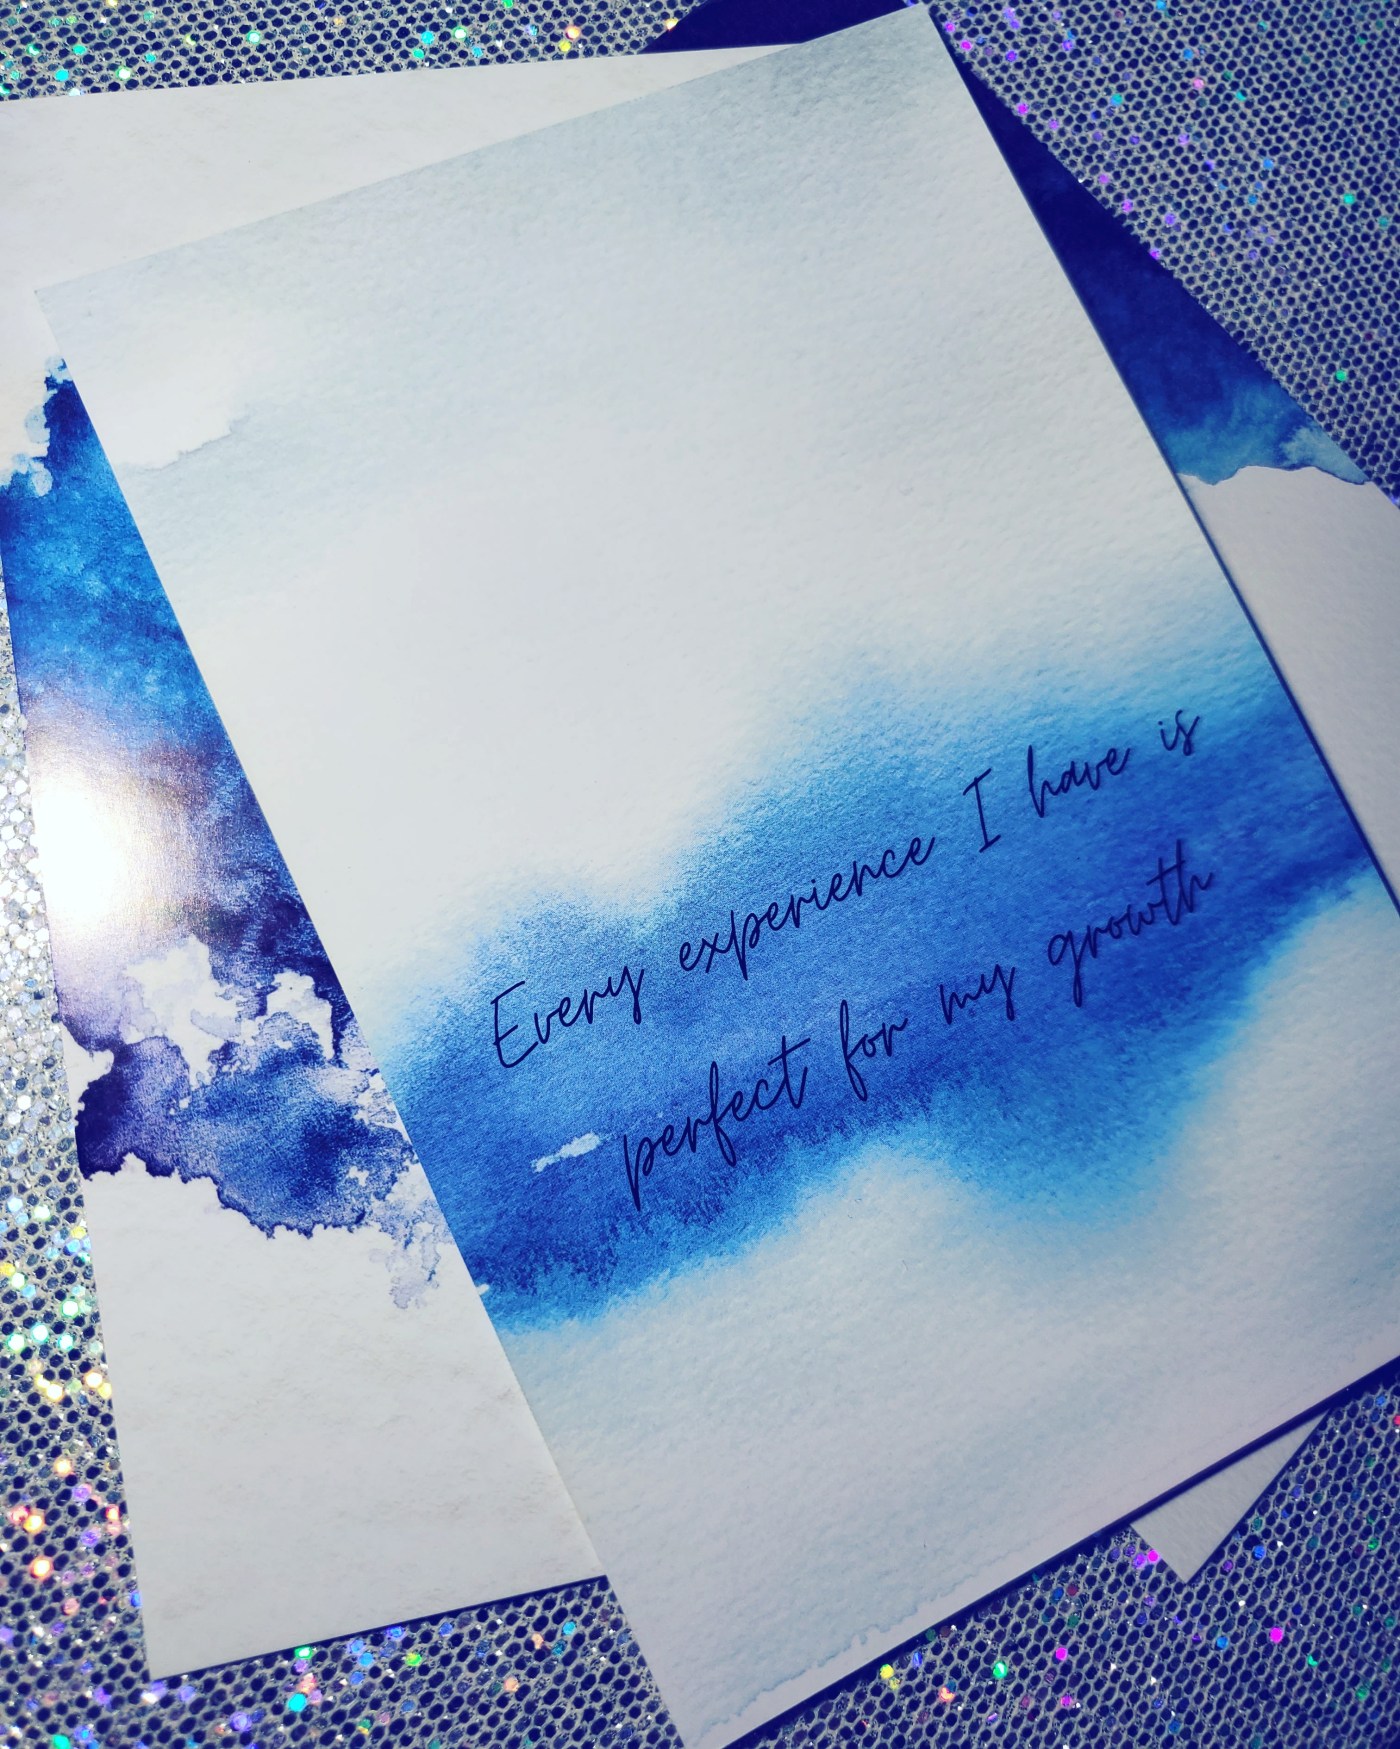 Every experience I have is
perfect for my growth